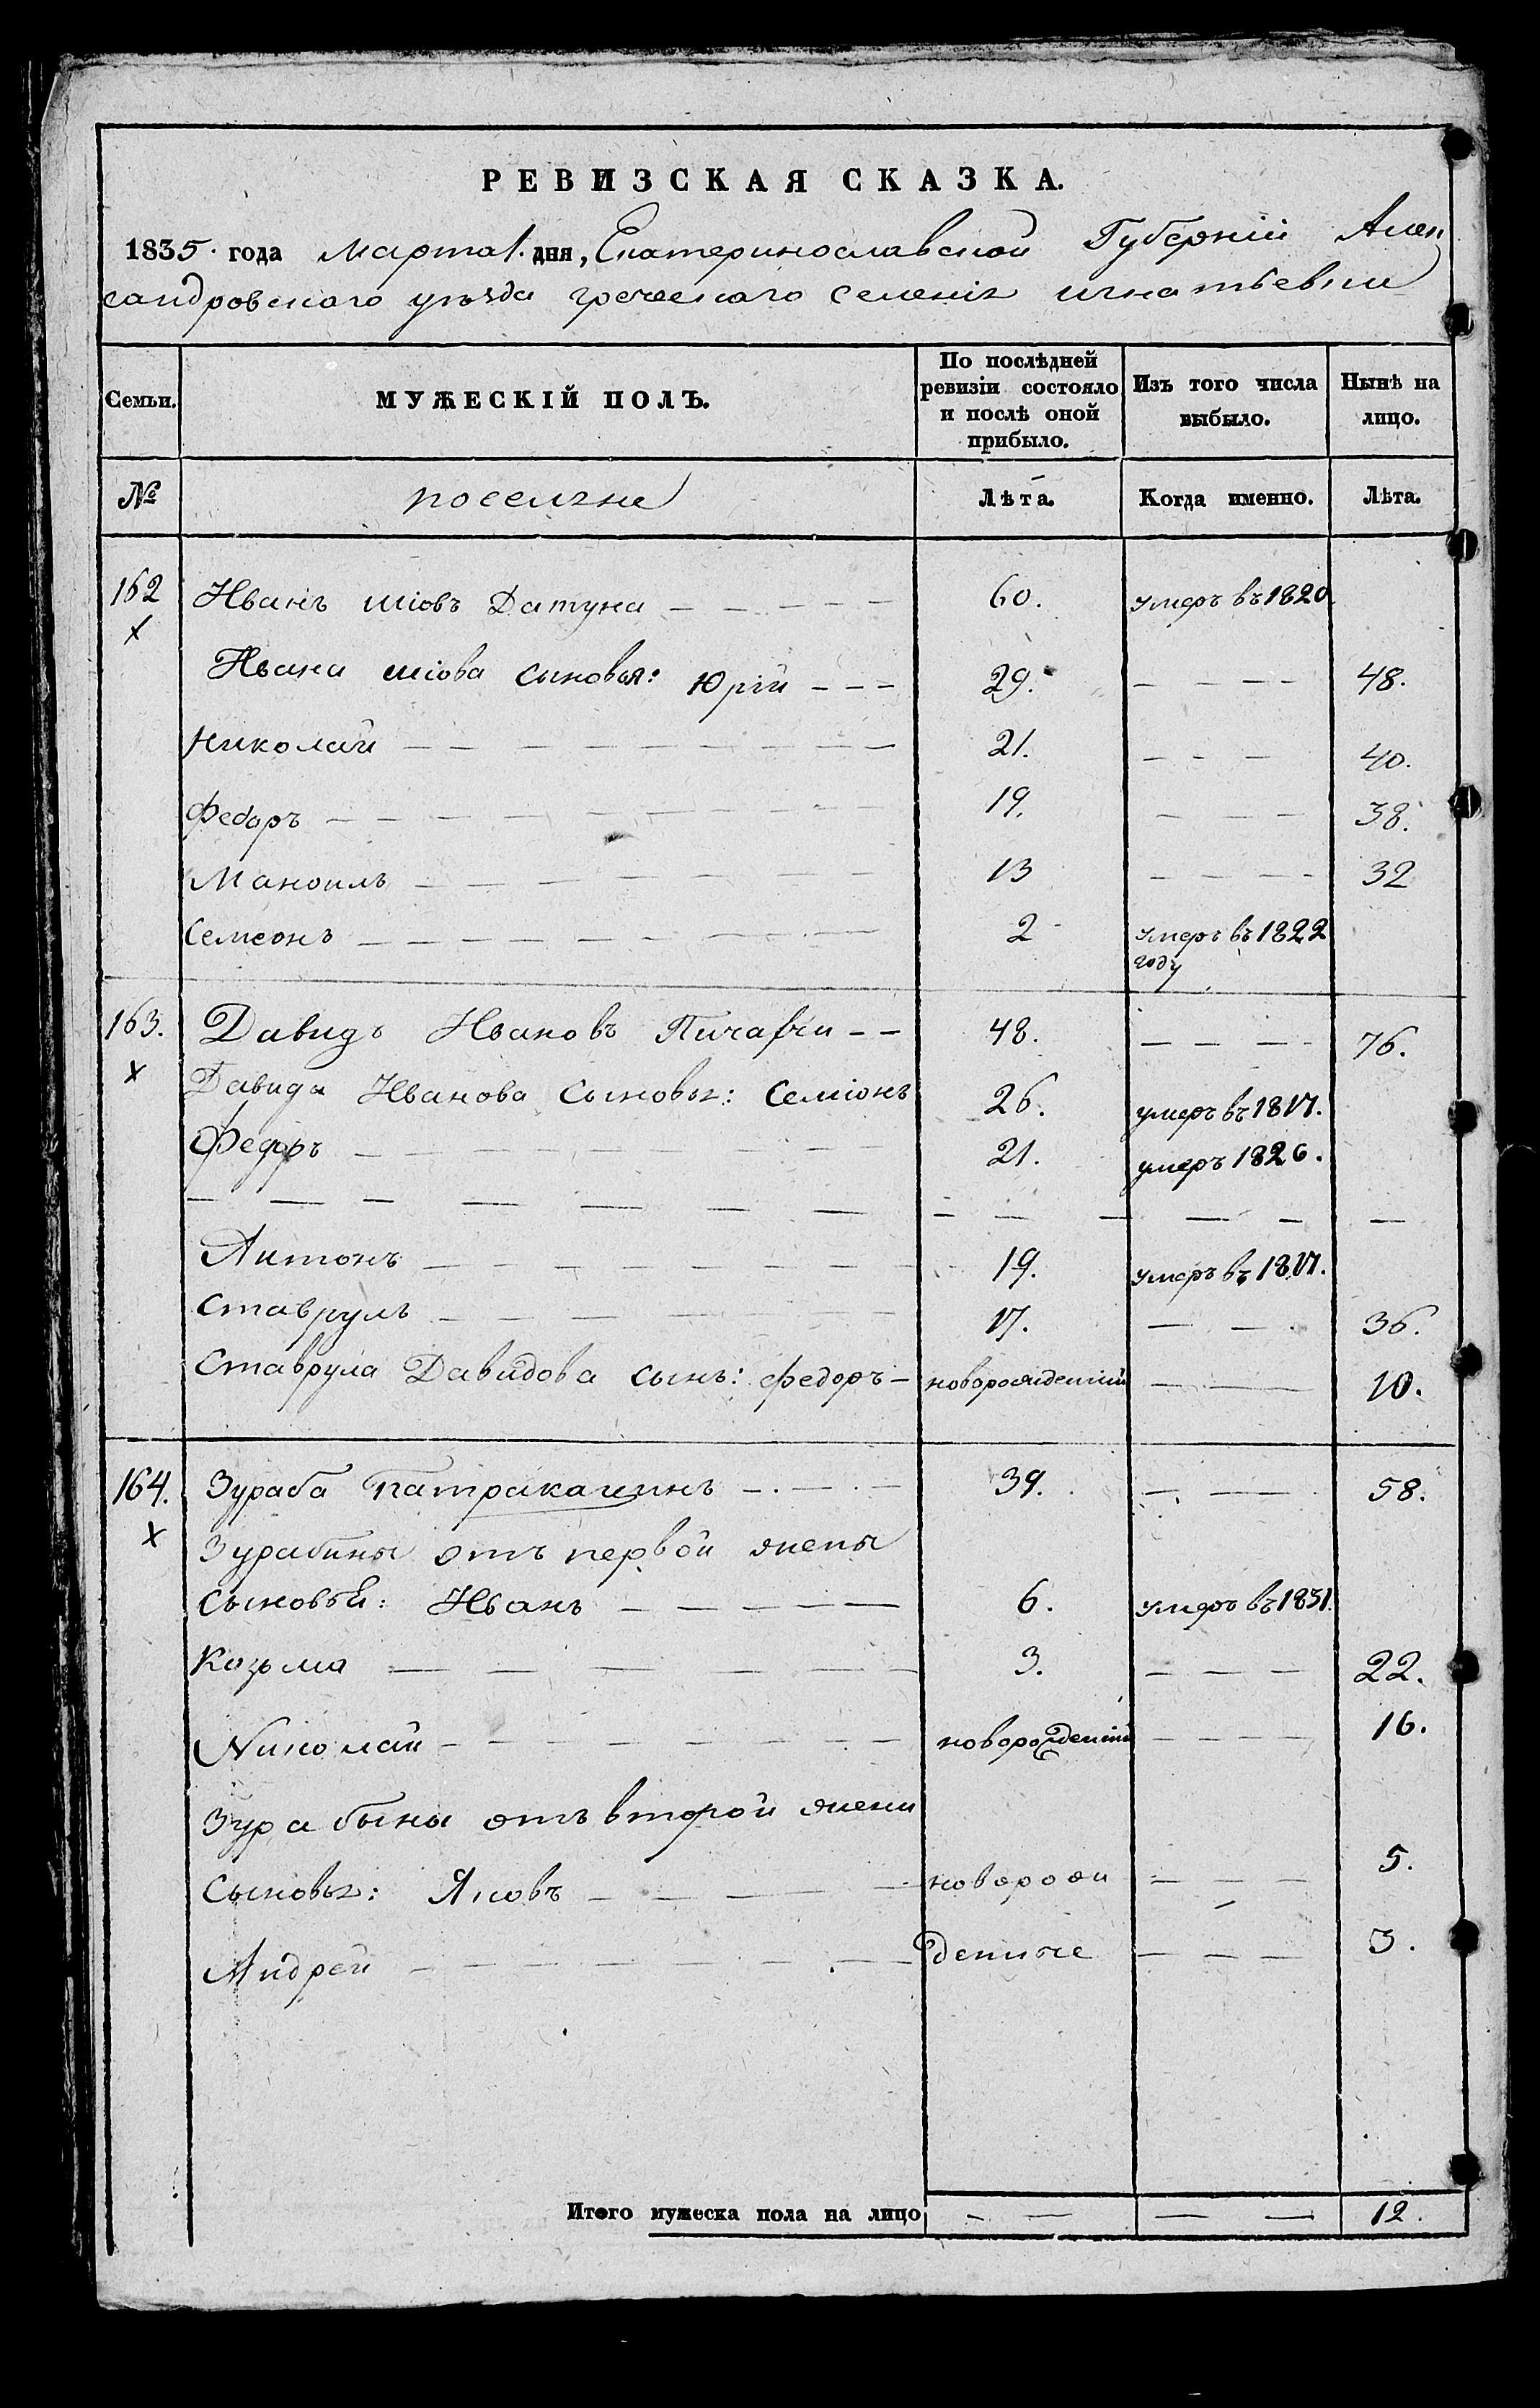 РЕВИЗСКАЯ СКАЗКА.
1835 года Марта 1. дня, Екатеринославской Губерніи Алек
сандровского уѣзда греческаго селенія игнатьевки
Семьи. МУЖЕСКІЙ ПОЛЪ. По послѣдней ревизіи состояло и послѣ оной прибыло. Изъ того числа выбыло. Нынѣ на лицо.
№ поселяне Лѣта. Когда именно. Лѣта.
162 Иванъ шіовъ Датуна 60. умеръ въ 1820
х
Ивана шіова сыновья: Юрій 29. 48.
Николай 21. 40.
Федоръ 19. 38.
Маноилъ 13 32
Семеонъ 2 умеръ въ 1822 году
163. Давидъ Ивановъ Пичахчи 48. 76.
х
Давида Иванова сыновья: Семіонъ 26. умеръ въ 1817.
Федоръ 21. умеръ 1826.
Антонъ 19. умеръ въ 1817.
Ставрулъ 17. 36.
Ставрула Давидова сынъ: федоръ новорожденній 10.
164. Зураба Патракацинъ 39. 58.
х
Зурабины отъ первой жены
сыновья: Иванъ 6. умеръ въ 1831.
Козьма 3. 22.
Николай новорожденній 16.
Зурабыны отъ второй жени
Сыновья: Яковъ новорож 5.
Андрей денные 3.
Итого мужеска пола на лицо 12.